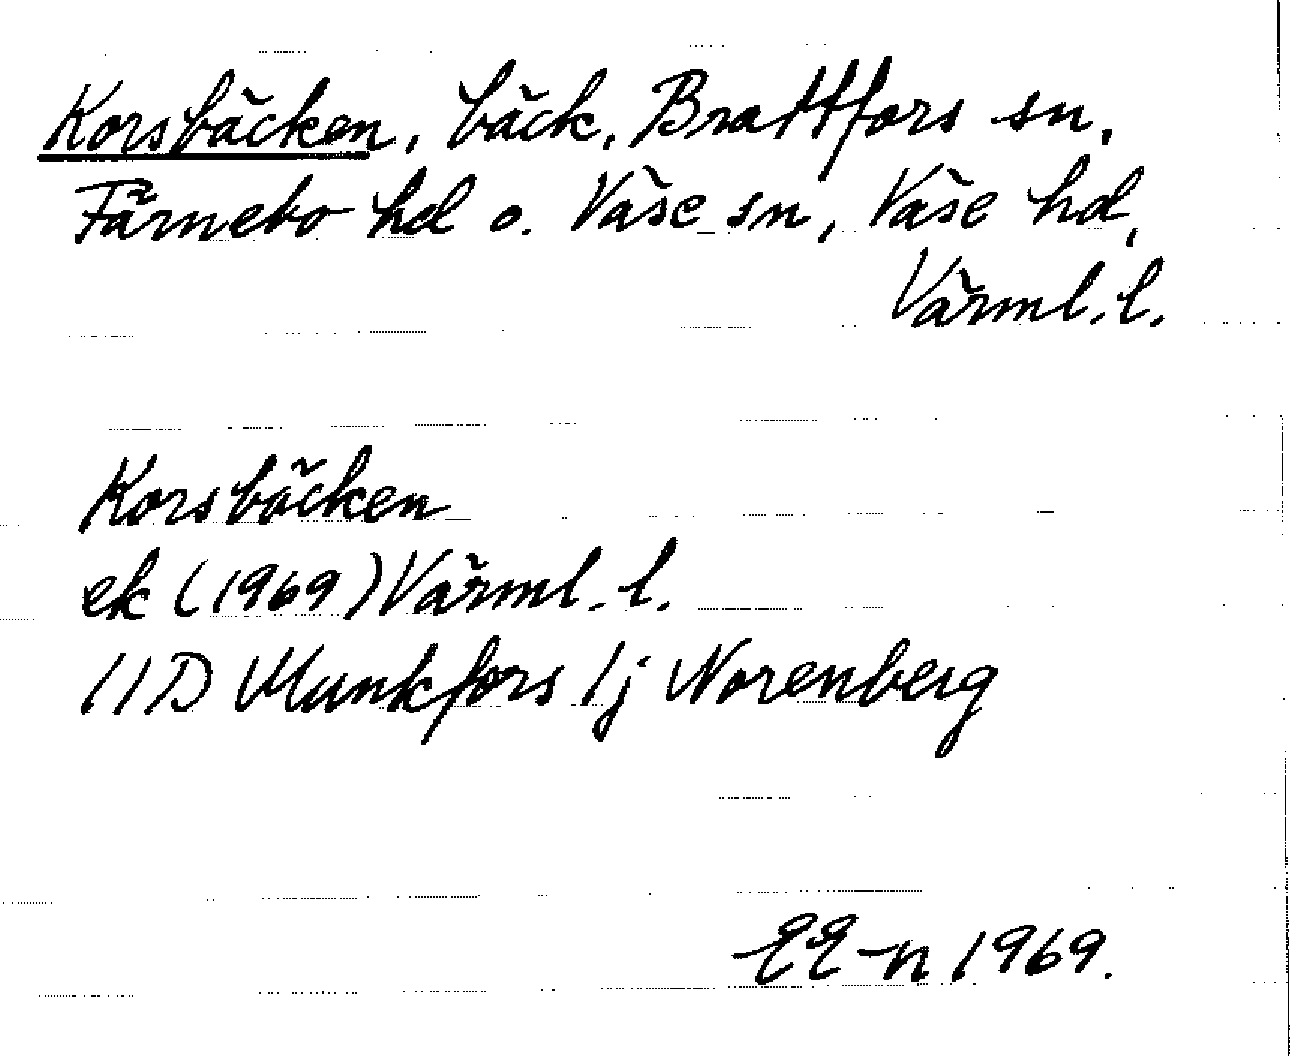 Korsbäcken, bäck, Brattfors sn,
Färnebo hd o. Väse sn, Väse hd,
Värml. l.
Korsbäcken
ek (1969) Värml. l.
11D Munkfors 1j Norenberg
EE-n 1969.